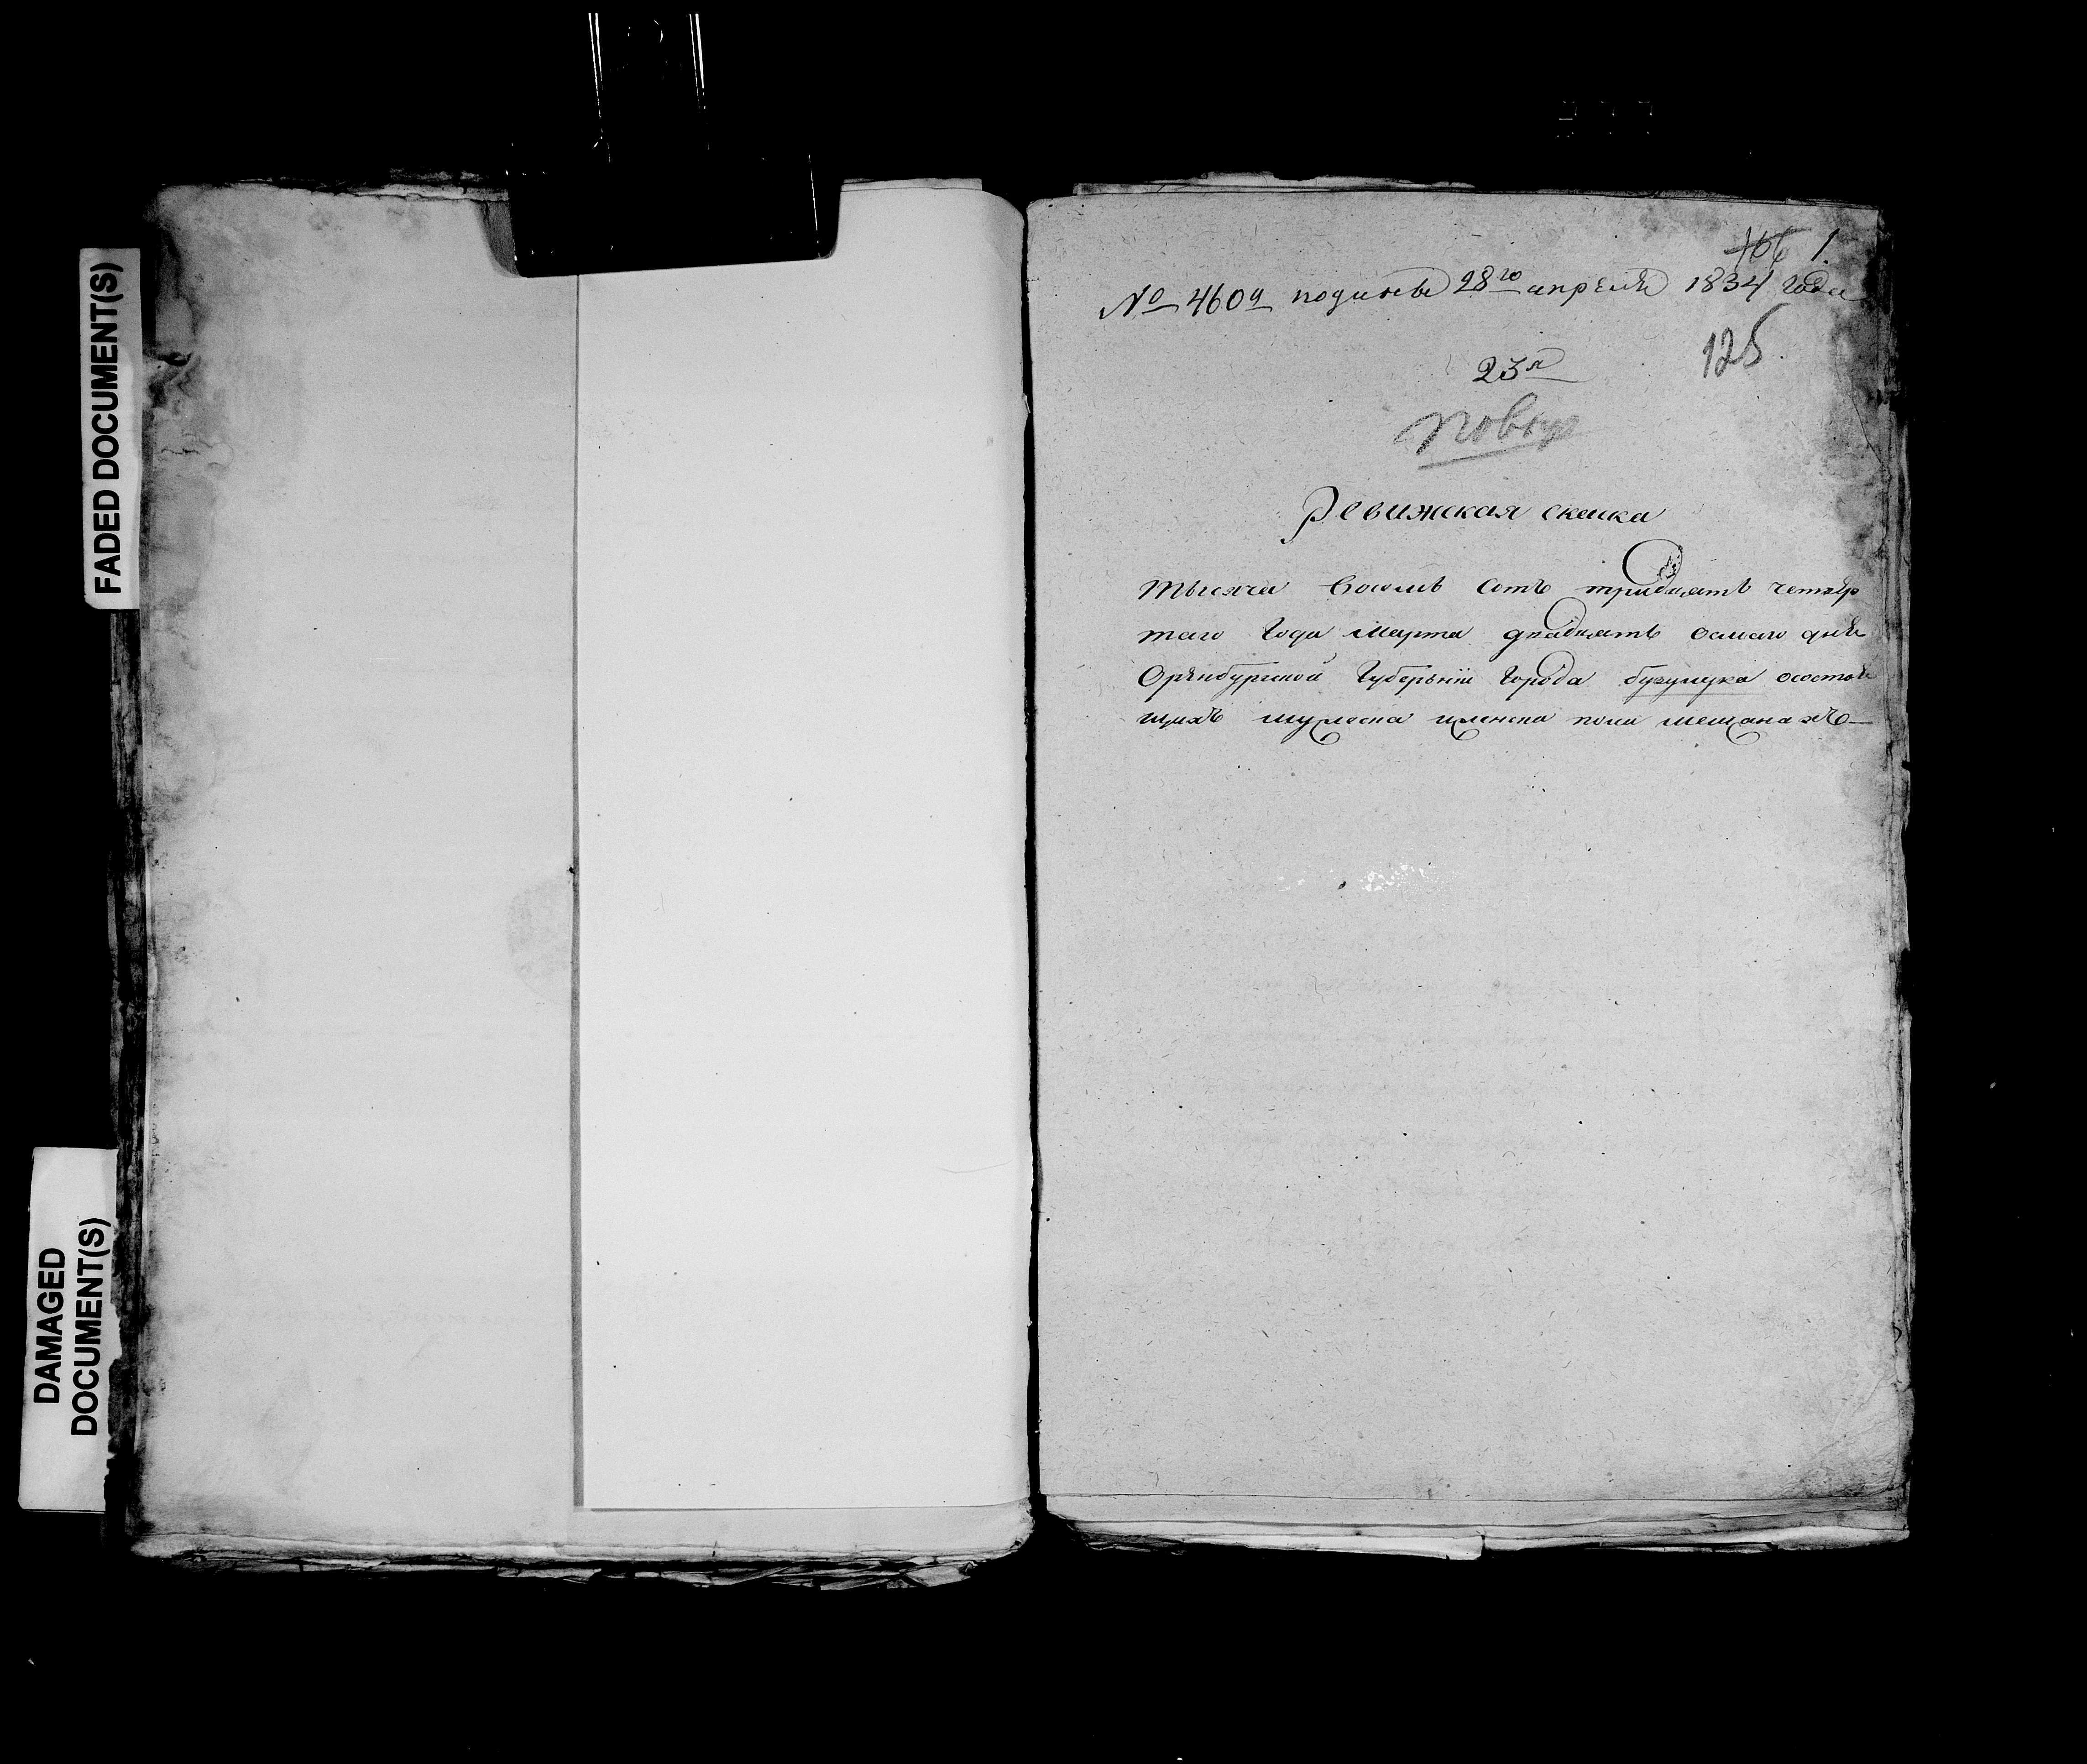 FADED DOCUMENT(S)
DAMAGED
DOCUMENT(S)
106 1.
№ 460й поданы 28го апреля 1834 года
125
23я
Ревижская скаска
тысяча восемь сотъ тридцать четвер
таго года марта двадцать осмаго дня
Оренбургской Губернiи города бузулука осостоя
щихъ мужеска женска пола мещанахъ